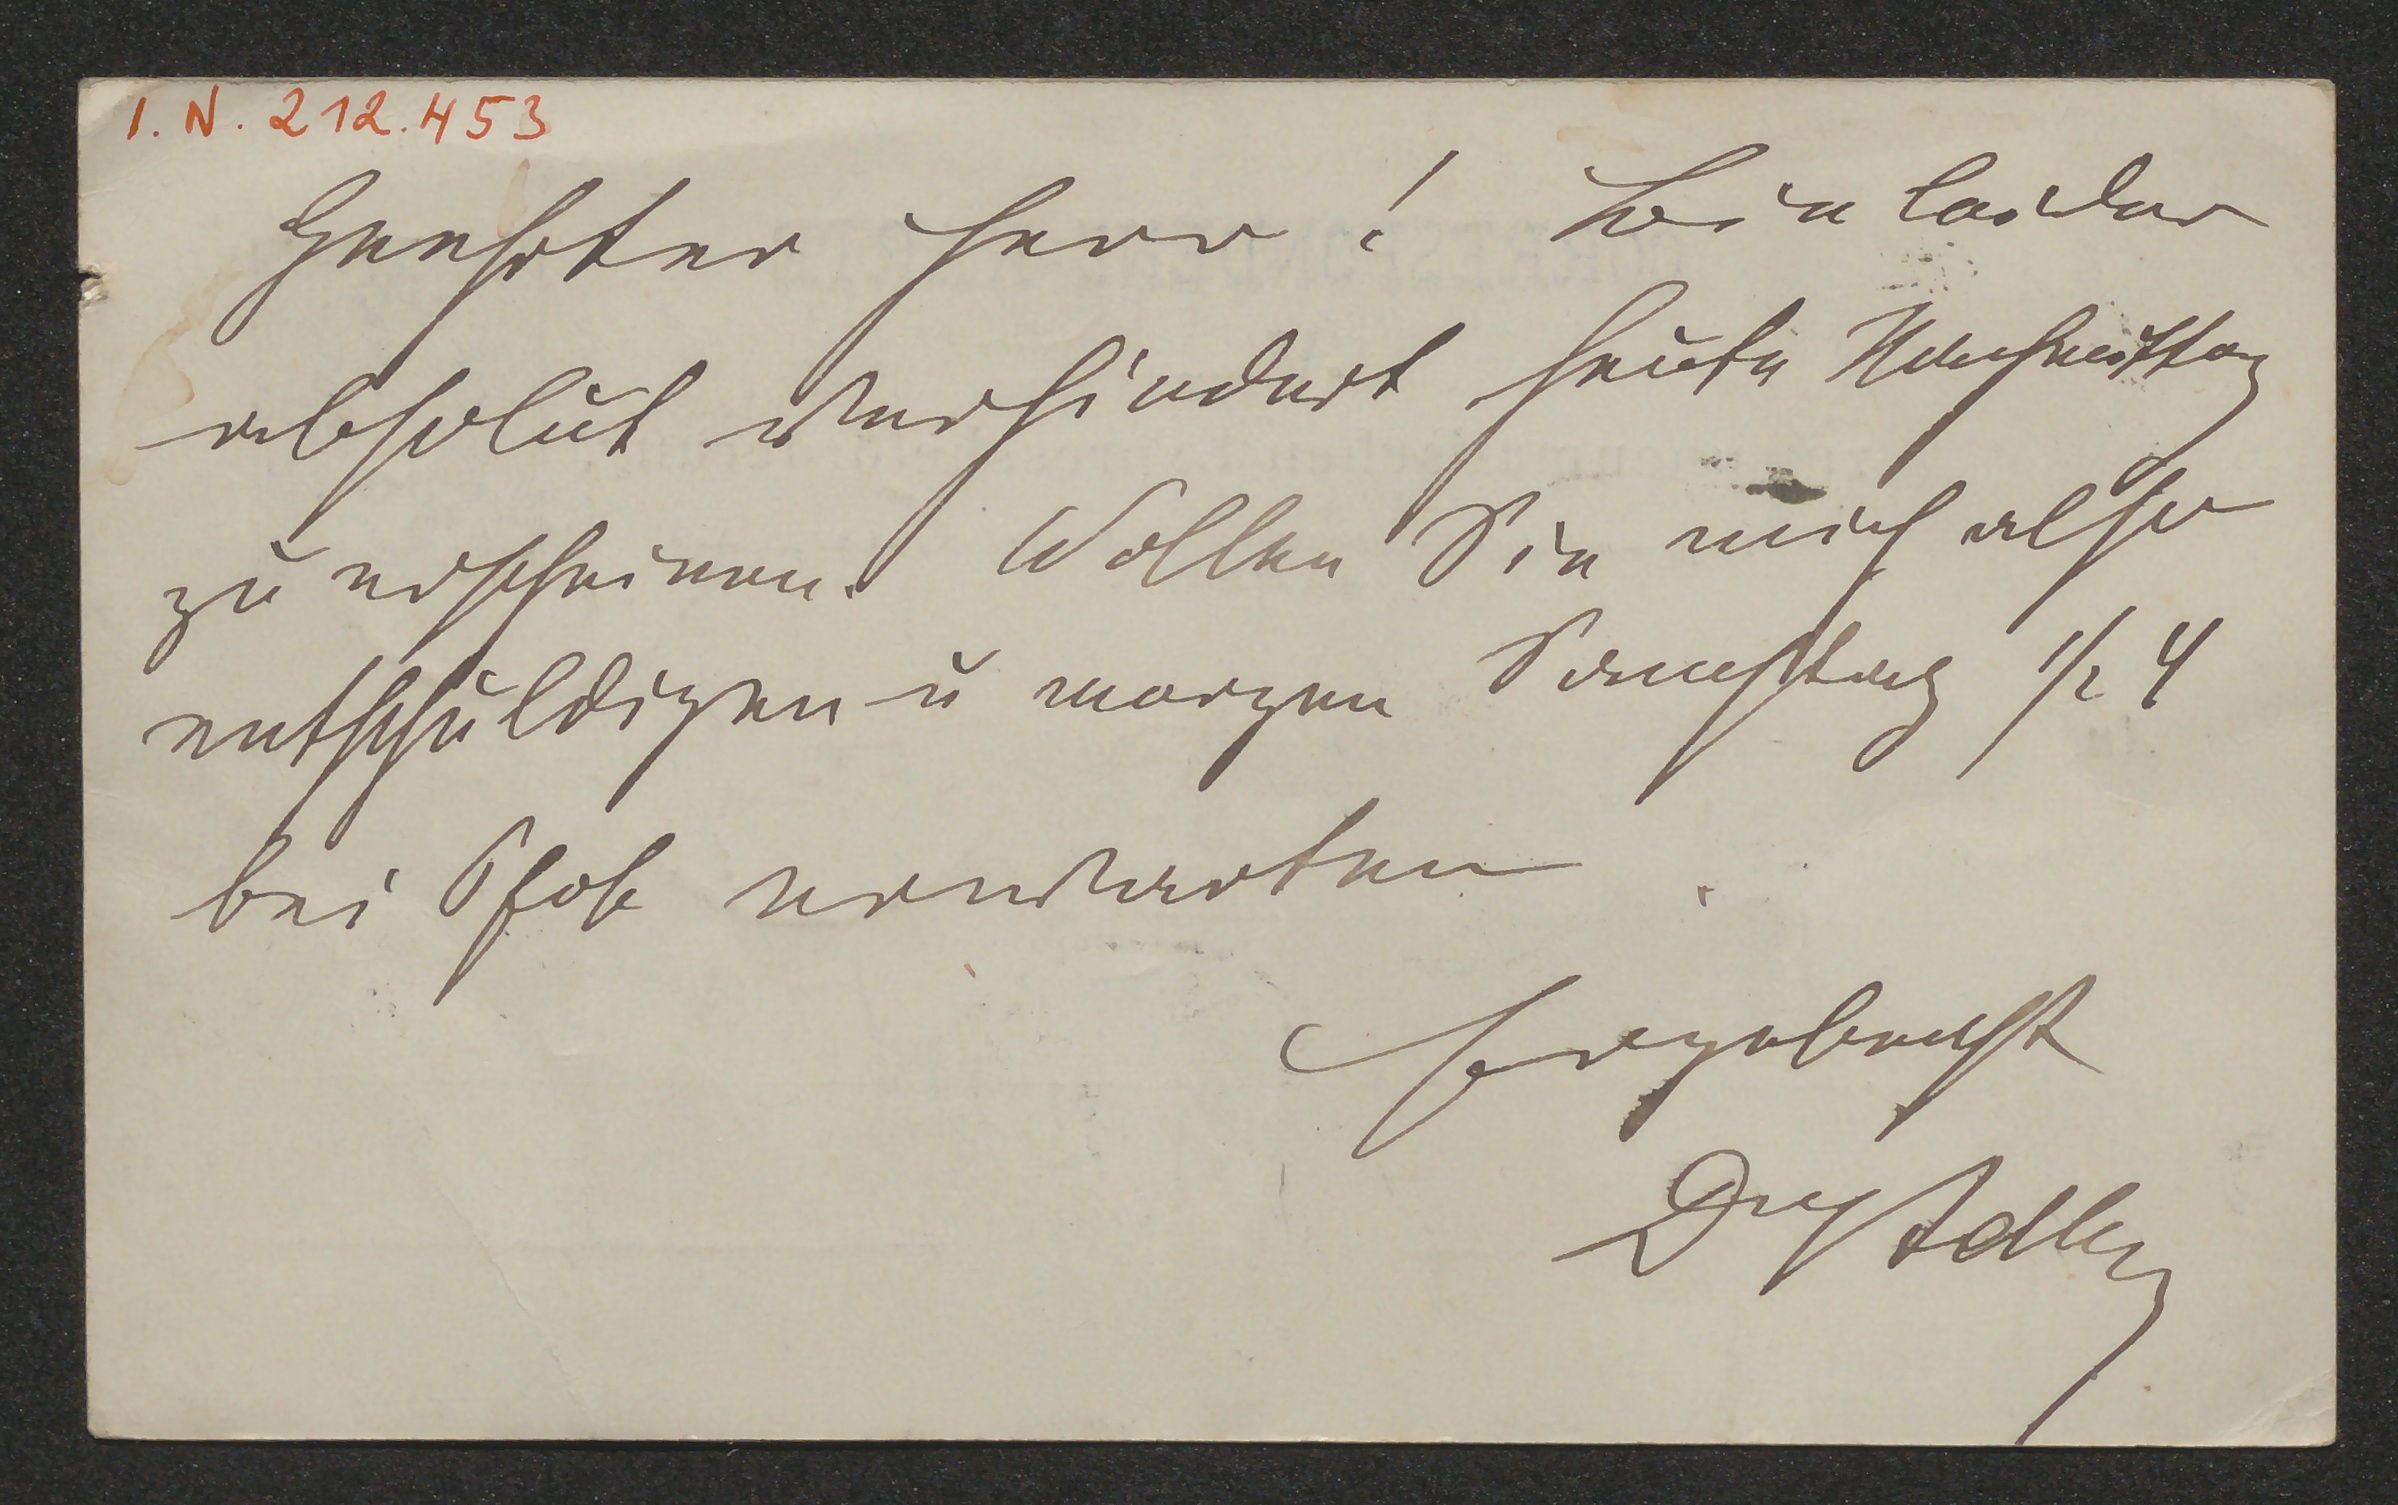 I. N. 212.453
Geehrter Herr! Bin leider
absolut verhindert heute Nachmittag
zu erscheinen. Wollen Sie mich also
entschuldigen u morgen Samstag 1/2 4
bei erwarten.
Ergebenst
Adler